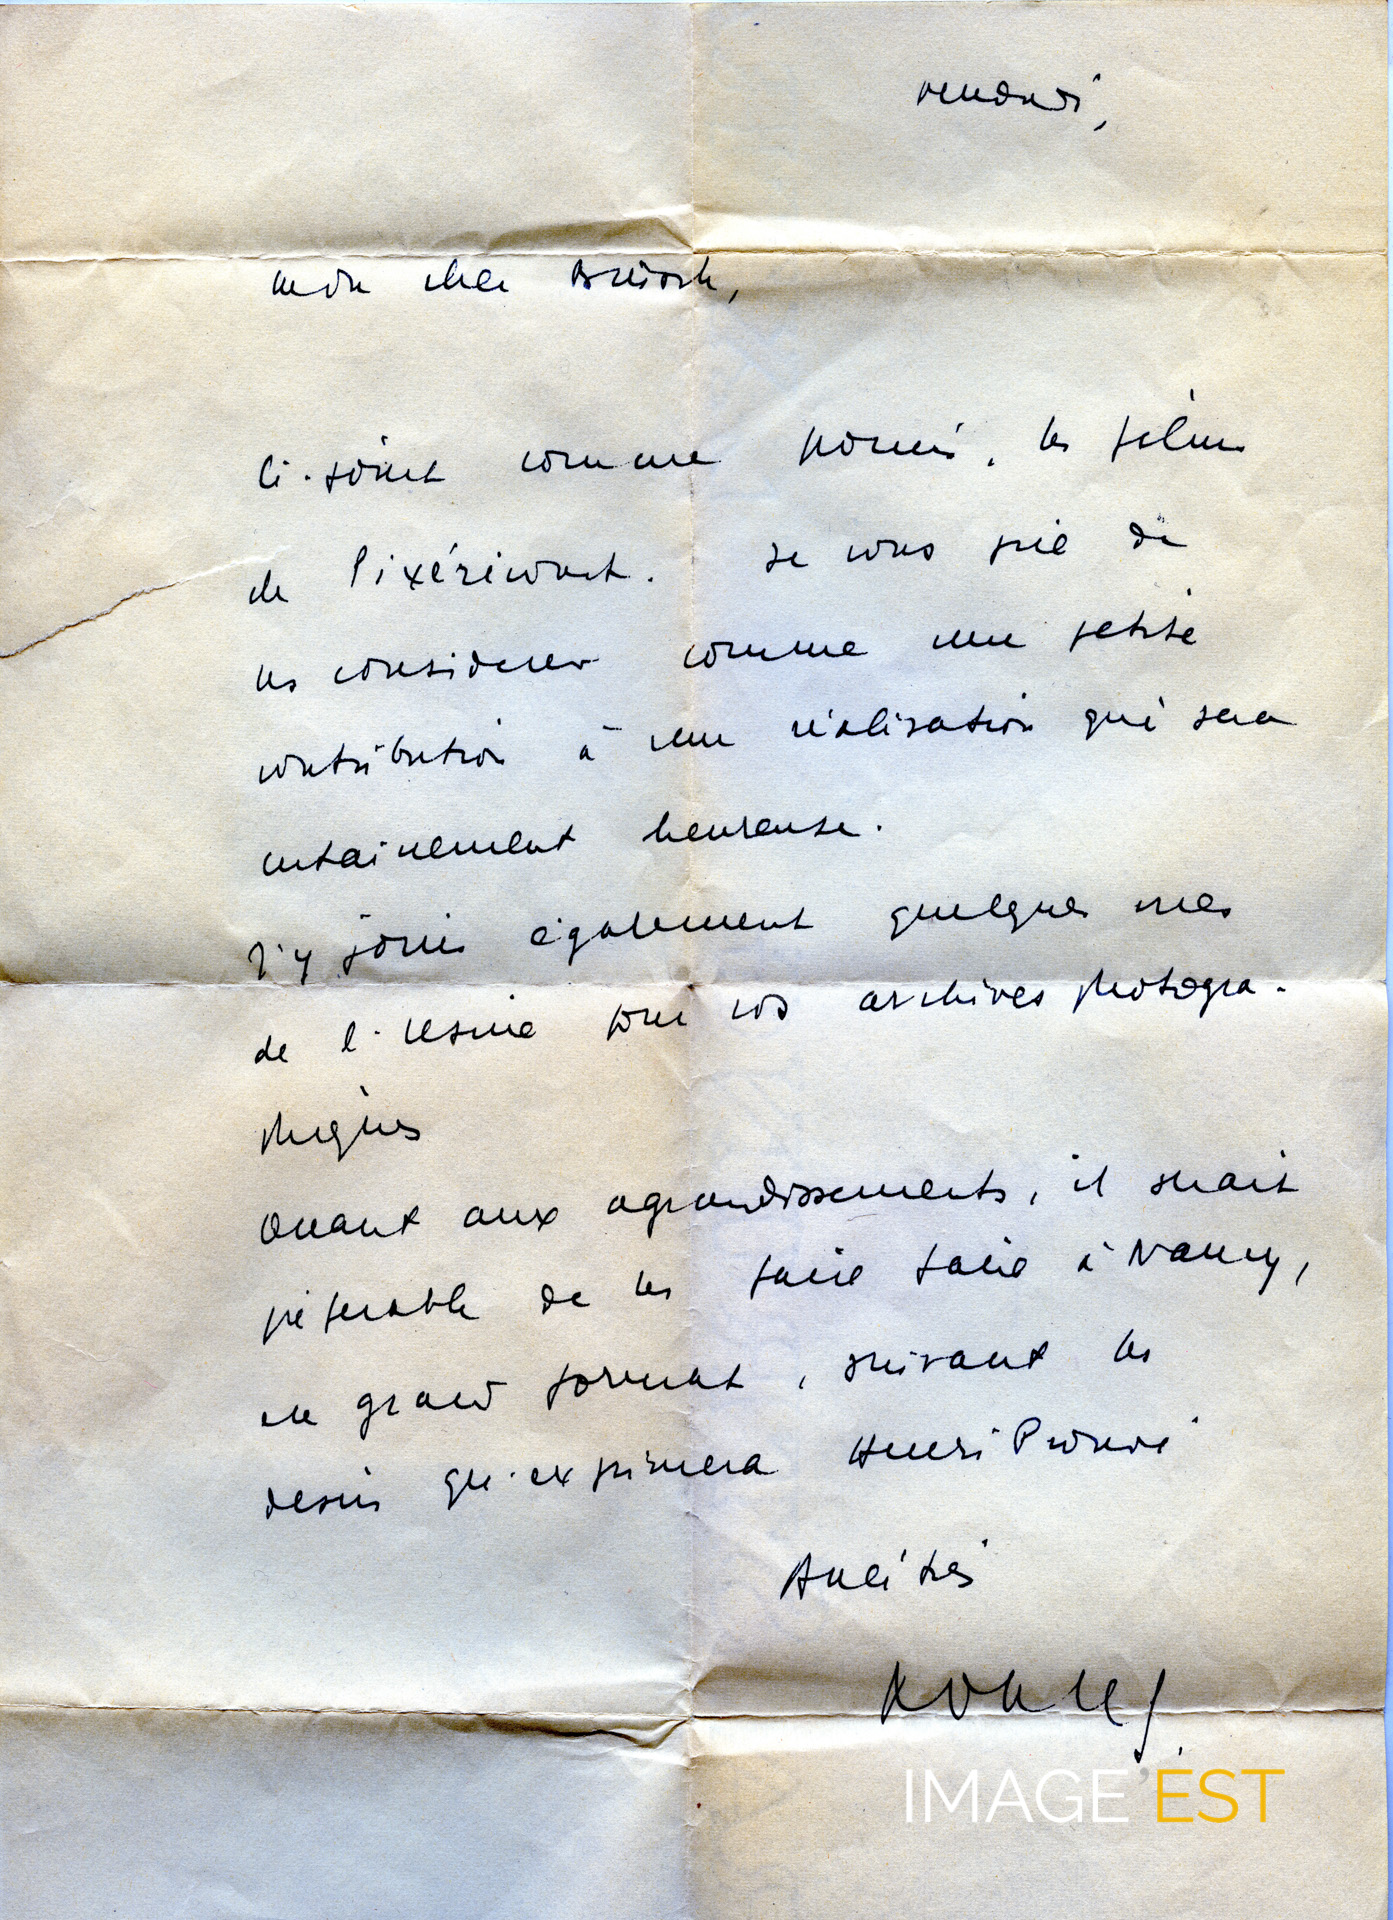 vendredi,
mon cher
ci-joint comme promis, les films
de Pixéricourt. Je vous prie de
les considerer comme une petite
contribution à une réalisation qui sera
certainement heureuse.
J'y joins également quelques vues
de l'usine pour vos archives photogra-
phiques
Quant aux agrandissements, il serait
préférable de les faire faire à Nancy,
en grand format, suivant les
desirs qu'exprimera Henri Prouvé
Amitiés
IMAGE'EST